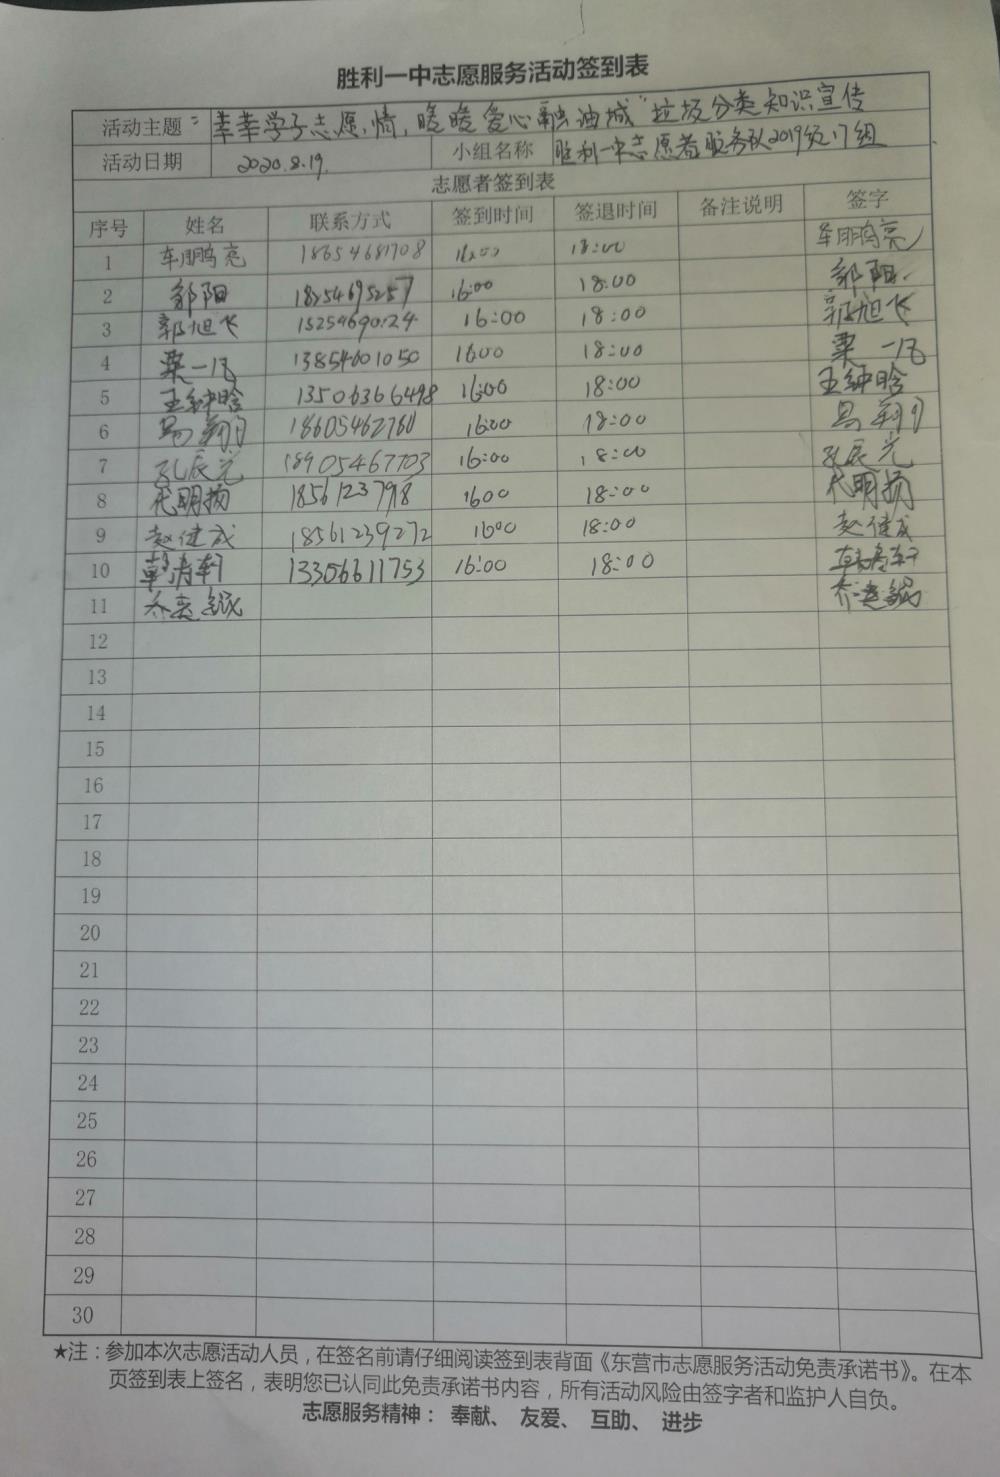 胜利一中志愿服务活动签到表
活动主题 "莘莘学子志愿情,暖暖爱心融油城"垃圾分类知识宣传
活动日期 2020.8.19. 小组名称 胜利一中志愿者服务队2019级17组
志愿者签到表
序号 姓名 联系方式 签到时间 签退时间 备注说明 签字
1 车鹏亮 18654681708 16:00 18:00 车鹏亮
2 邹阳 18254695257 16:00 18:00 邹阳
3 郭旭飞 15254690124 16:00 18:00 郭旭飞
4 栗一凡 13854601050 16:00 18:00 栗一凡
5 王钟晗 13506366498 16:00 18:00 王钟晗
6 马翔月 18605462760 16:00 18:00 马翔月
7 孔辰光 18905467703 16:00 18:00 孔辰光
8 代明扬 1856123798 1600 18:00 代明扬
9 赵健成 18561239272 1600 18:00 赵健成
10 韩清轩 13306611753 16:00 18:00 韩清轩
11 乔奕铭 乔奕铭
12
13
14
15
16
17
18
19
20
21
22
23
24
25
26
27
28
29
30
★注:参加本次志愿活动人员,在签名前请仔细阅读签到表背面《东营市志愿服务活动免责承诺书》。在本
页签到表上签名,表明您已认同此免责承诺书内容,所有活动风险由签字者和监护人自负。
志愿服务精神: 奉献、 友爱、 互助、 进步